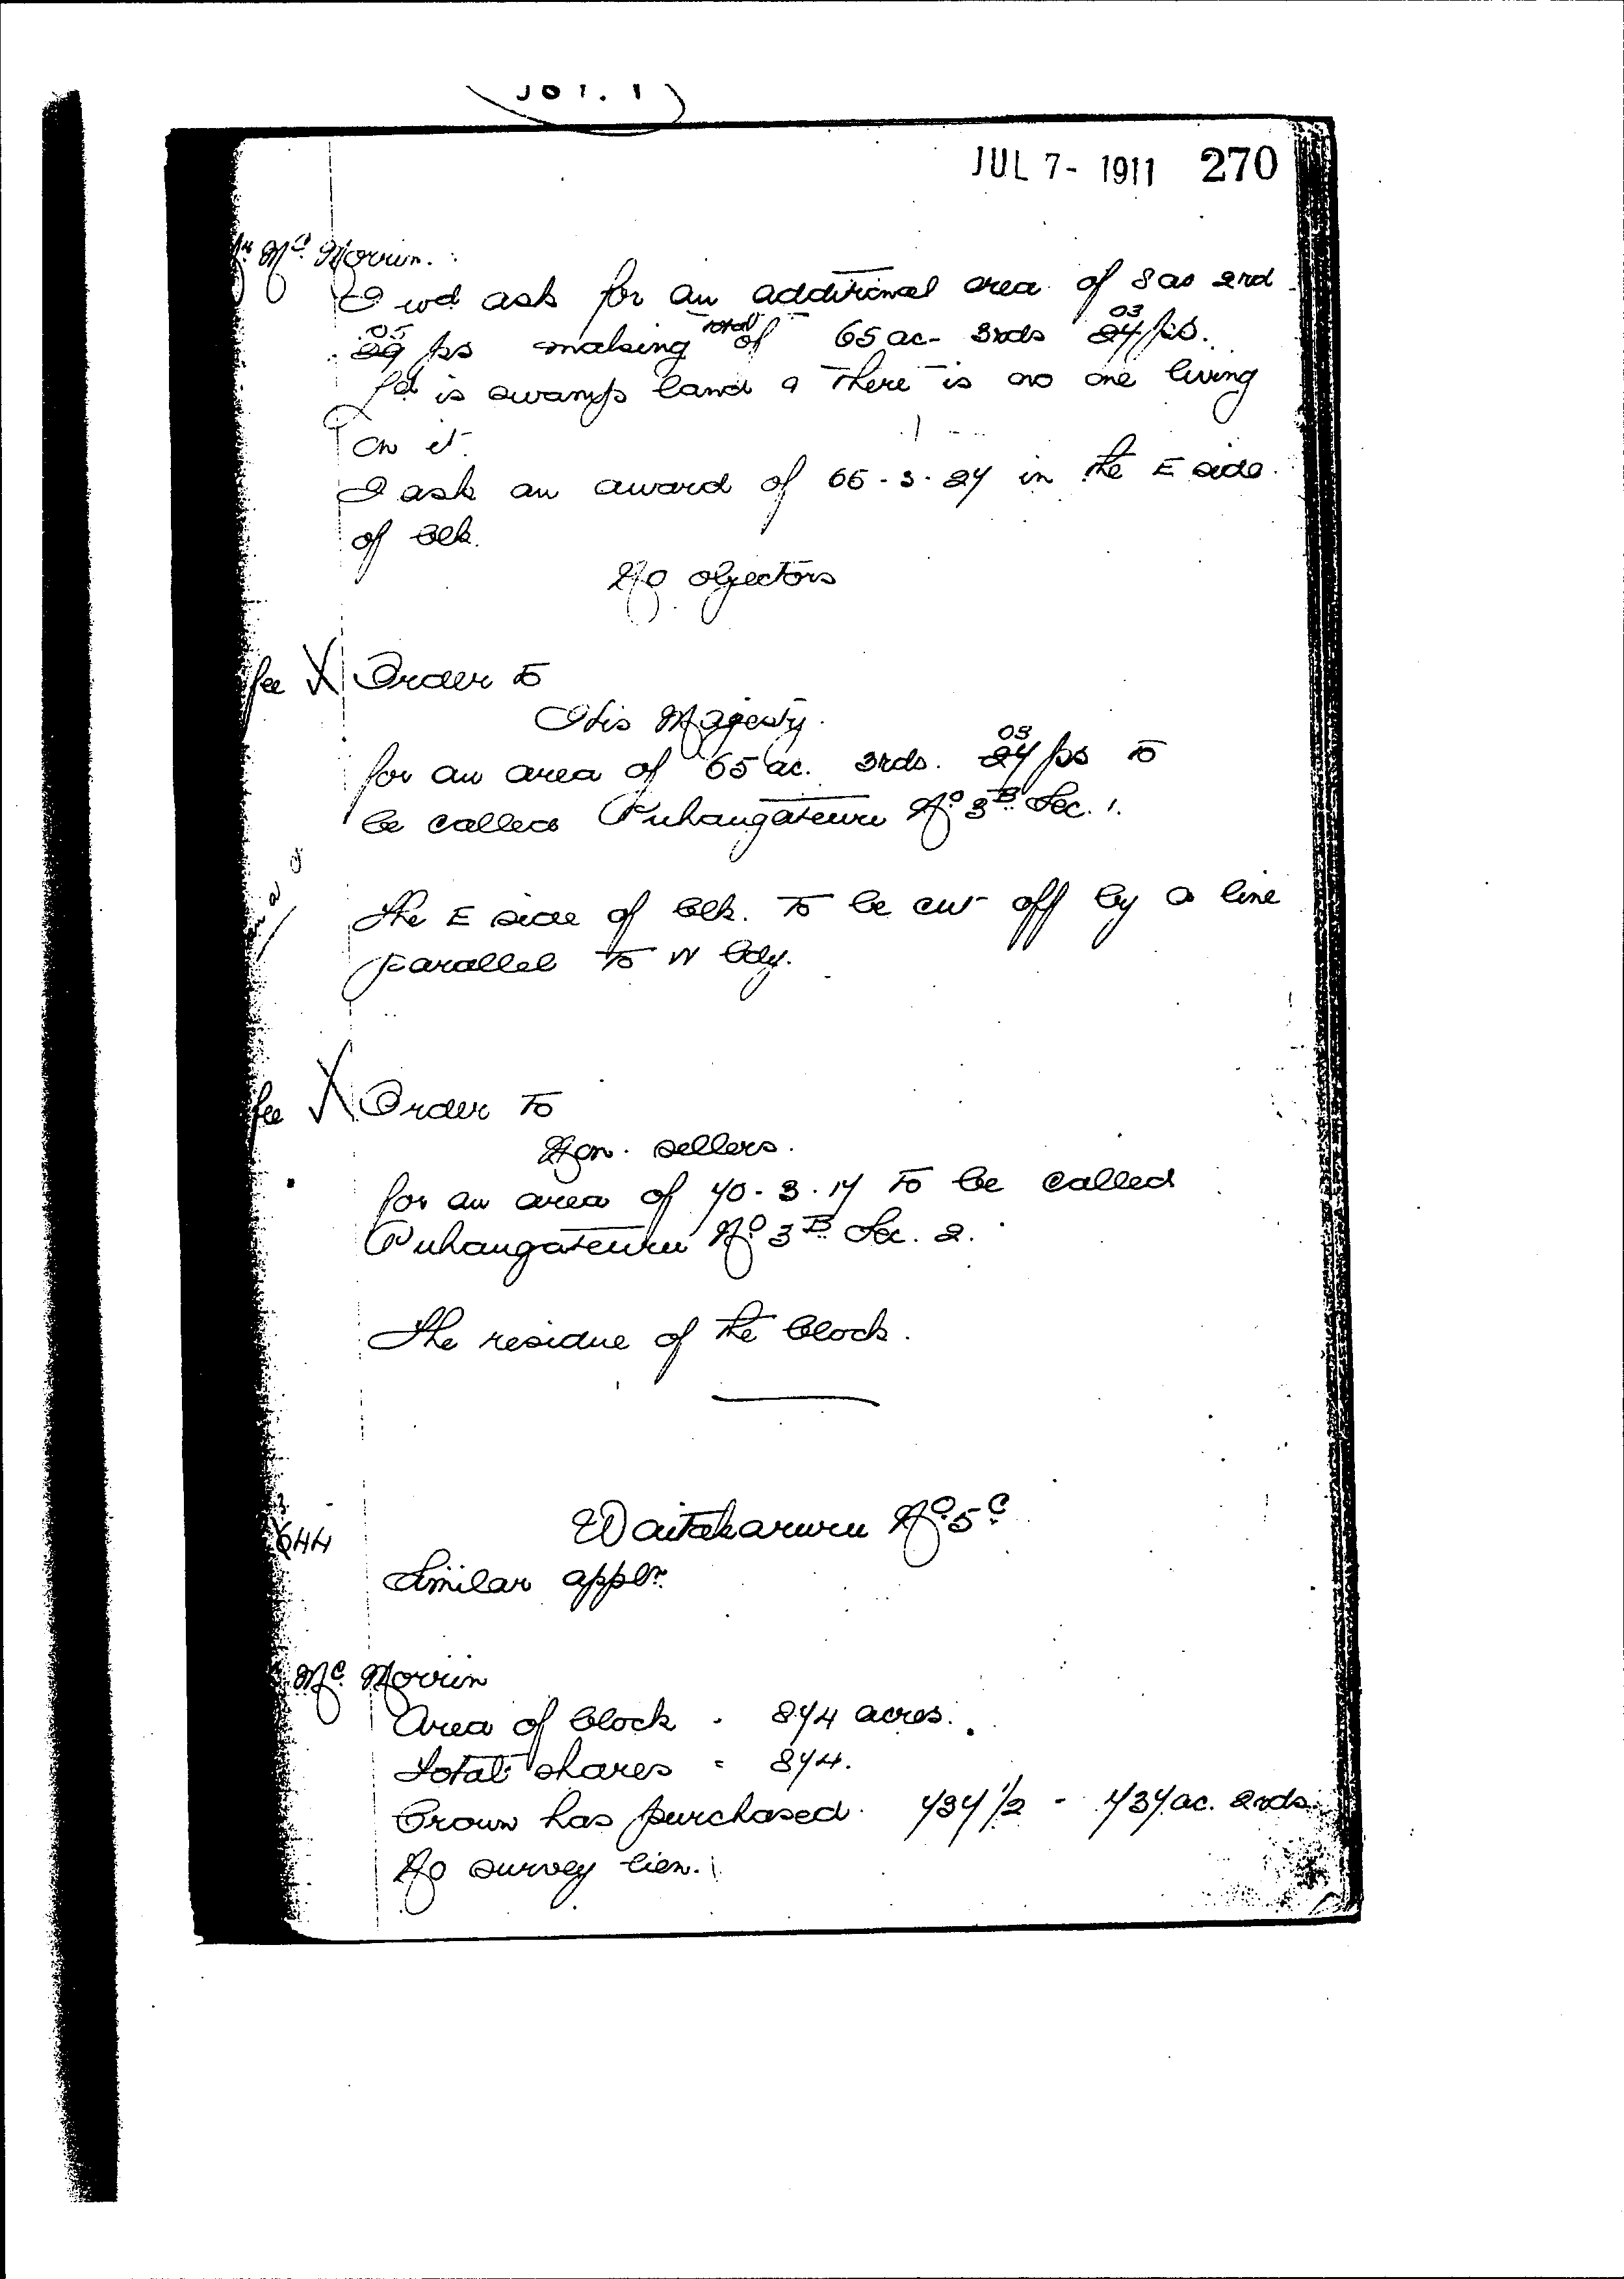 JUL 7- 1911 270
Mc Morrin.
I wd ask for an additional area of 8 ac 2rd
05 total 03
29 ps making of 65 ac- 3rds 27 ps.
It is swamp land & there is no one living
on it.
I ask an award of 65-3-27 in the E side
of blk.
No objectors
fee X Order to
His Majesty.
03
for an area of 65 ac. 3rds. 27 ps to
be called Puhangateuru No 3B Sec. 1.
The E side of blk. to be cut off by a line
parallel to W bdy.
fee X Order to
Non. sellers.
for an area of 70-3-17 to be called
Puhangateuru No 3B Sec. 2.
The residue of the block.
644 Waitakaruru No 5C
Similar appln.
Mc Morrin
Area of block - 874 acres.
Total shares = 874.
Crown has purchased. 737 1/2 - 737 ac. 2rds.
No survey lien.